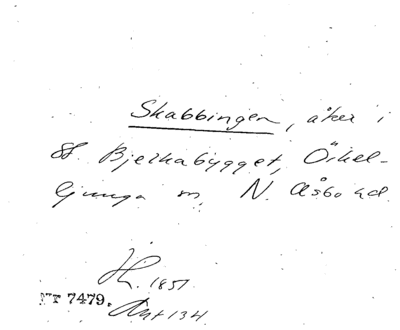 Skabbingen, åker i
St. Bjerkabygget, Örkel-
ljunga sn, N. Åsbo hd.
1851
Nr 7479.